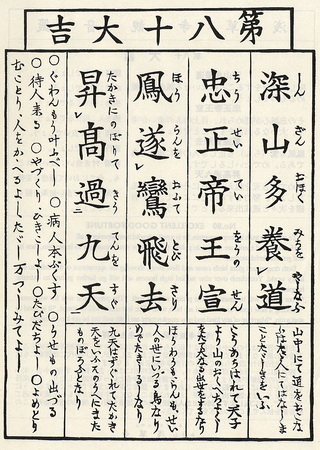 第八十大吉
深山多養道
しん ざん おほく みちを やしなふ
忠正帝王宣
ちう せい てい わうの せん
鳳遂鸞飛去
ほう らんを おふて とび さり
昇髙過九天
たかきに のぼりて きう てんを すぐ
山中にて道をおこな
ふは凡人にてはなしま
ことなる事をいふ
あらはれて天子
より山のおくへちよくし
をたて大なる出世をするなり
ほうわうもらんも、せい
人の世にいづる鳥なり
めでたき
九天はすぐれてたかき
天をいふそのうへにまた
ものぼるなり
○ぐわんもう叶ふべし ○病人本ぷくす ○うせもの出づる
○待人来る ○やづくり、ひきこしよし ○たびだちよし ○よめとり
むことり、人をかゝへるよしたゞし万つゝしみてよし